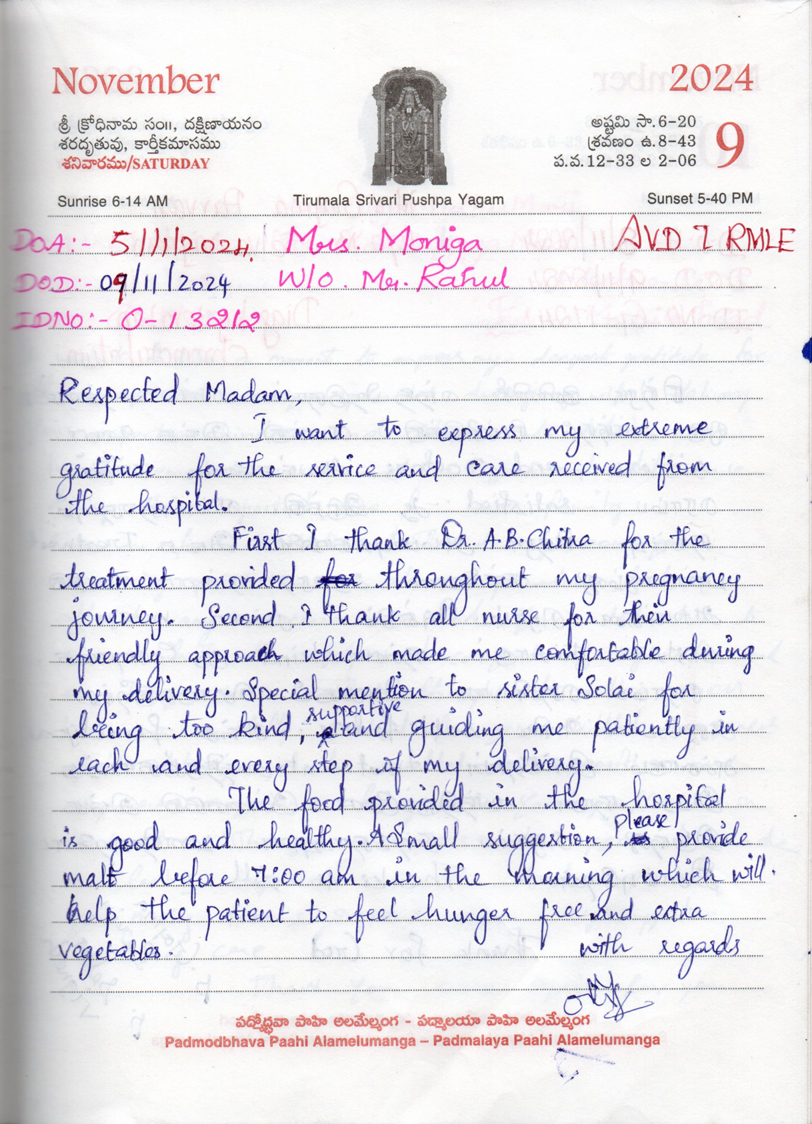 November
2024
శ్రీ క్రోధినామ సం॥, దక్షిణాయనం
శరదృతువు, కార్తీకమాసము
శనివారము/SATURDAY
అష్టమి సా.6-20
శ్రవణం ఉ.8-43
ప.వ.12-33 ల 2-06
9
Sunrise 6-14 AM
Tirumala Srivari Pushpa Yagam
Sunset 5-40 PM
DOA:- 5/11/2024. Mrs. Moniga AVD 7 RMLE
DOD:- 09/11/2024 W/o. Mr. Rahul
IDNO:- O-13212
Respected Madam,
I want to express my extreme
gratitude for the service and care received from
the hospital.
First I thank Dr. A.B.Chitra for the
treatment provided for throughout my pregnancy
journey. Second I thank all nurse for their
friendly approach which made me comfortable during
my delivery. Special mention to sister Solai for
being too kind, supportive and guiding me patiently in
each and every step of my delivery.
The food provided in the hospital
is good and healthy. A Small suggestion, please provide
malt before 7:00 am in the morning which will.
help the patient to feel hunger free and extra
vegetables.
with regards
పద్మోద్భవా పాహి అలమేల్మంగ - పద్మాలయా పాహి అలమేల్మంగ
Padmodbhava Paahi Alamelumanga – Padmalaya Paahi Alamelumanga